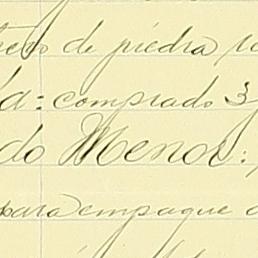 de piedra
comprado 3
do Menor:
para empaque